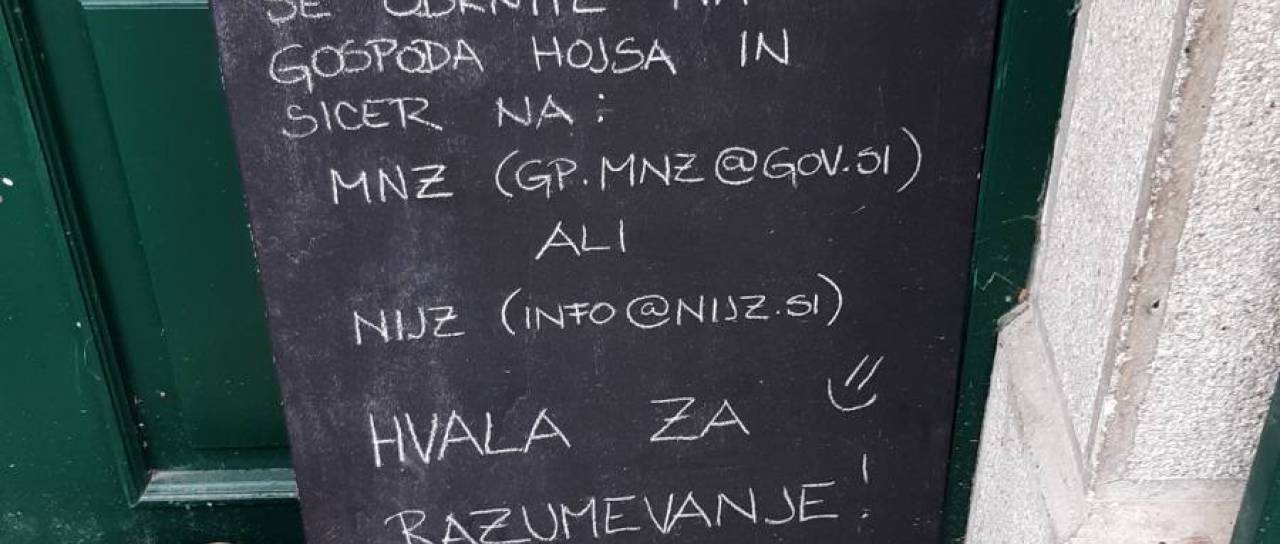 SE OBRNITE NA
GOSPODA HOJSA IN
SICER NA:
MNZ (GP.MNZ@GOV.SI)
ALI
NIJZ (INFO@NIJZ.SI)
HVALA ZA
RAZUMEVANJE!